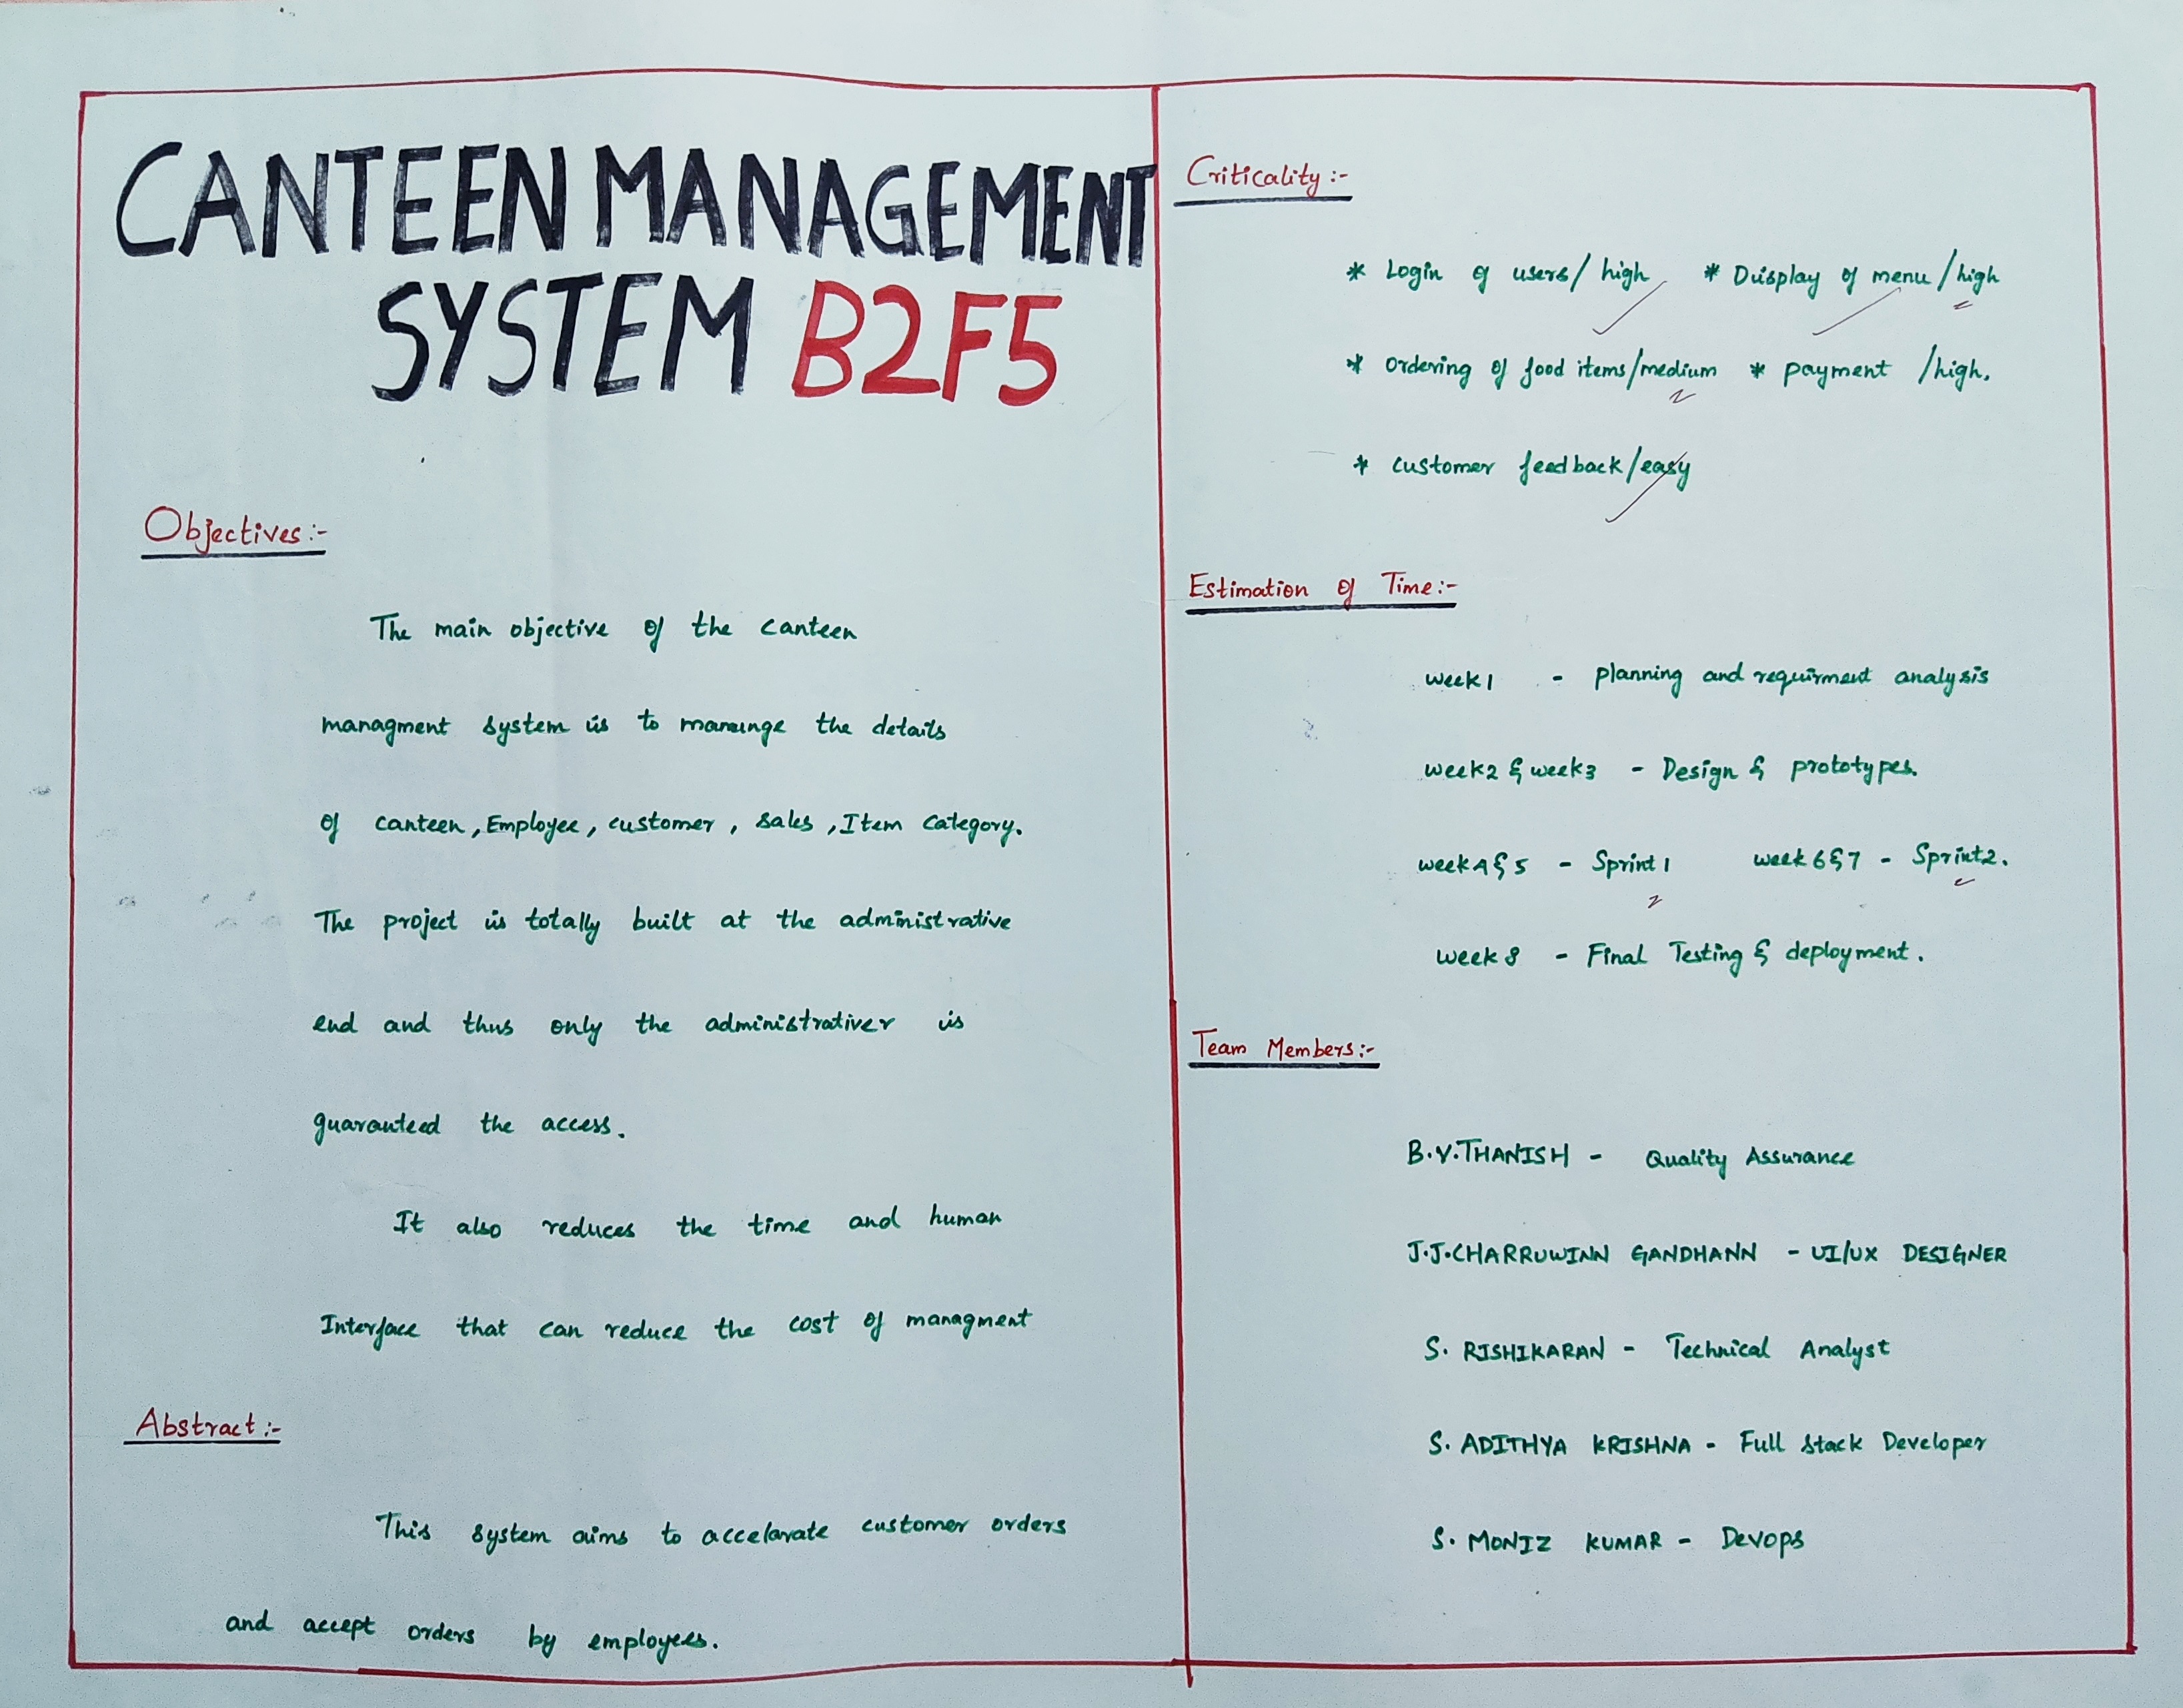 CANTEEN MANAGEMENT
SYSTEM B2F5
Objectives:-
The main objective of the canteen
managment system is to manange the details
of canteen, Employee, customer, sales, Item category.
The project is totally built at the administrative
end and thus only the administrativer is
guaranteed the access.
It also reduces the time and human
Interface that can reduce the cost of managment
Abstract:-
This system aims to accelarate customer orders
and accept orders by employees.
Criticality:-
* Login of users/high * Display of menu/high
* Ordering of food items/medium * payment /high.
* customer feedback/easy
Estimation of Time:-
week1 - planning and requirment analysis
week2 & week3 - Design & prototypes.
week4&5 - Sprint1 week6&7 - Sprint2.
week8 - Final Testing & deployment.
Team Members:-
B.V.THANISH - Quality Assurance
J.J.CHARRUWINN GANDHANN - UI/UX DESIGNER
S. RISHIKARAN - Technical Analyst
S. ADITHYA KRISHNA - Full stack Developer
S. MONIZ KUMAR - Devops